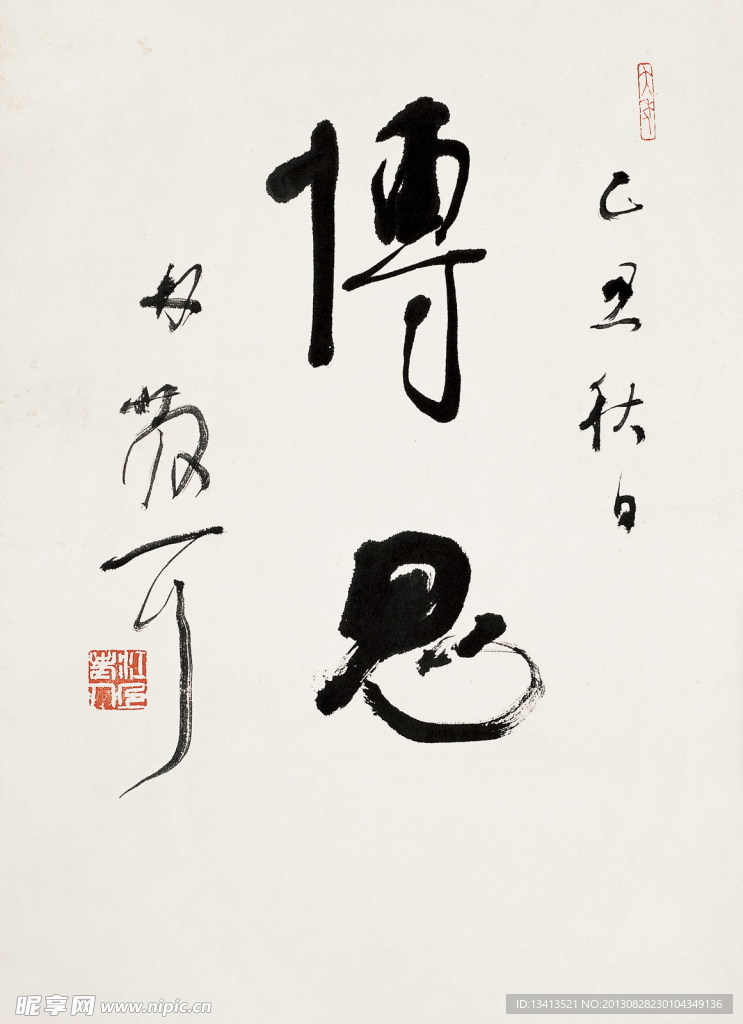 乙丑秋日
博思
林散耳
昵享网 www.nipic.cn
ID:13413521 NO:20130828230104349136